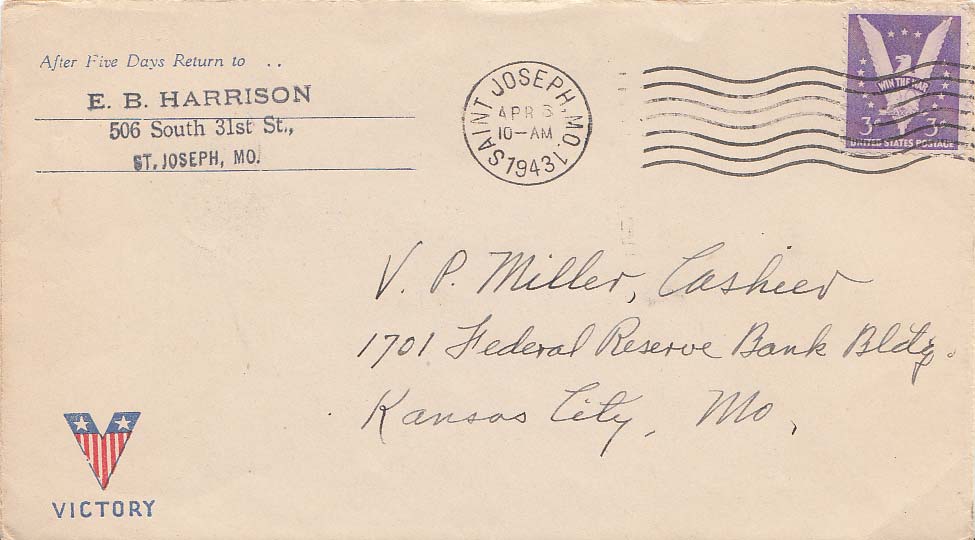 After Five Days Return to . .
E. B. HARRISON
506 South 31st St.,
ST. JOSEPH, MO.
SAINT JOSEPH, MO. 1
APR
10-AM
1943
WIN THE WAR
3¢ 3¢
UNITED STATES POSTAGE
V. P. Miller, Casheer
1701 Federal Reserve Bank Bldg.
Kansas City, Mo,
V
VICTORY